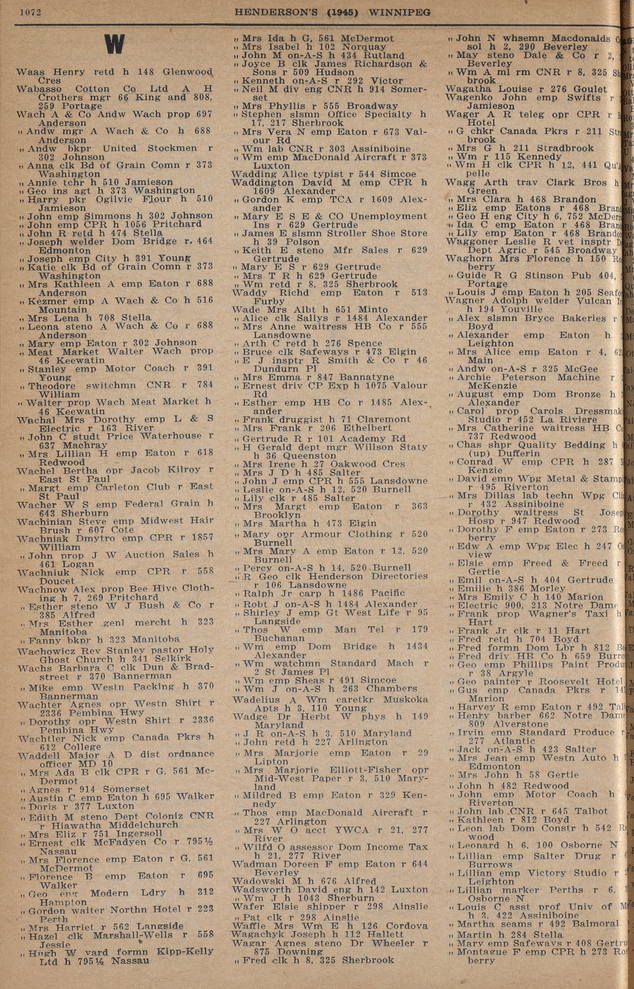 1072 HENDERSON'S (1945) WINNIPEG
W
Waas Henry retd h 148 Glenwood
Cres
Wabasso Cotton Co Ltd A H
Crothers mgr 66 King and 808,
259 Portage
Wach A & Co Andw Wach prop 697
Anderson
" Andw mgr A Wach & Co h 688
Anderson
" Andw bkpr United Stockmen r
302 Johnson
" Anna clk Bd of Grain Comn r 373
Washington
" Annie tchr h 510 Jamieson
" Geo ins agt h 373 Washington
" Harry pkr Ogilvie Flour h 510
Jamieson
" John emp Simmons h 302 Johnson
" John emp CPR h 1056 Pritchard
" John R retd h 474 Stella
" Joseph welder Dom Bridge r. 464
Edmonton
" Joseph emp City h 391 Young
" Katie clk Bd of Grain Comn r 373
Washington
" Mrs Kathleen A emp Eaton r 688
Anderson
" Kezmer emp A Wach & Co h 516
Mountain
" Mrs Lena h 708 Stella
" Leona steno A Wach & Co r 688
Anderson
" Mary emp Eaton r 302 Johnson
" Meat Market Walter Wach prop
46 Keewatin
" Stanley emp Motor Coach r 391
Young
" Theodore switchmn CNR r 784
William
" Walter prop Wach Meat Market h
46 Keewatin
Wachal Mrs Dorothy emp L & S
Electric r 163 River
" John C studt Price Waterhouse r
637 Machray
" Mrs Lillian H emp Eaton r 618
Redwood
Wachel Bertha opr Jacob Kilroy r
East St Paul
" Margt emp Carleton Club r East
St Paul
Wacher W S emp Federal Grain h
643 Sherburn
Wachinian Steve emp Midwest Hair
Brush r 607 Cote
Wachniak Dmytro emp CPR h 1857
William
" John prop J W Auction Sales h
461 Logan
Wachniuk Nick emp CPR r 558
Doucet
Wachnow Alex prop Bee Hive Cloth-
ing h 7, 269 Pritchard
" Esther steno W J Bush & Co r
385 Alfred
" Mrs Esther genl mercht h 323
Manitoba
" Fanny bkpr h 323 Manitoba
Wachowicz Rev Stanley pastor Holy
Ghost Church h 341 Selkirk
Wachs Barbara C clk Dun & Brad-
street r 370 Bannerman
" Mike emp Westn Packing h 370
Bannerman
Wachter Agnes opr Westn Shirt r
2336 Pembina Hwy
" Dorothy opr Westn Shirt r 2336
Pembina Hwy
Wachtler Nick emp Canada Pkrs h
612 College
Waddell Major A D dist ordnance
officer MD 10
" Mrs Ada B clk CPR r G, 561 Mc-
Dermot
" Agnes r 914 Somerset
" Austin C emp Eaton h 695 Walker
" Doris r 377 Luxton
" Edith M steno Dept Coloniz CNR
r Hiawatha Middelchurch
" Mrs Eliz r 751 Ingersoll
" Ernest clk McFadyen Co r 795½
Nassau
" Mrs Florence emp Eaton r G, 561
McDermot
" Florence B emp Eaton r 695
Walker
" Geo emp Modern Ldry h 312
Hampton
" Gordon waiter Northn Hotel r 223
Perth
" Mrs Harriet r 562 Langside
" Hazel clk Marshall-Wells r 558
Jessie
" Hugh W yard formn Kipp-Kelly
Ltd h 795½ Nassau
" Mrs Ida h G, 561 McDermot
" Mrs Isabel h 102 Norquay
" John M on-A-S h 434 Rutland
" Joyce B clk James Richardson &
Sons r 509 Hudson
" Kenneth on-A-S r 292 Victor
" Neil M div eng CNR h 914 Somer-
set
" Mrs Phyllis r 555 Broadway
" Stephen slsmn Office Specialty h
17, 217 Sherbrook
" Mrs Vera N emp Eaton r 673 Val-
our Rd
" Wm lab CNR r 303 Assiniboine
" Wm emp MacDonald Aircraft r 373
Luxton
Wadding Alice typist r 544 Simcoe
Waddington David M emp CPR h
1609 Alexander
" Gordon K emp TCA r 1609 Alex-
ander
" Mary E S E & CO Unemployment
Ins r 629 Gertrude
" James E slsmn Stroller Shoe Store
h 39 Polson
" Keith E steno Mfr Sales r 629
Gertrude
" Mary E S r 629 Gertrude
" Mrs T R h 629 Gertrude
" Wm retd r 8, 325 Sherbrook
Waddy Richd emp Eaton r 513
Furby
Wade Mrs Albt h 651 Minto
" Alice clk Sallys r 1484 Alexander
" Mrs Anne waitress HB Co r 555
Lansdowne
" Arth C retd h 276 Spence
" Bruce clk Safeways r 473 Elgin
" E J insptr R Smith & Co r 46
Dundurn Pl
" Mrs Emma r 847 Bannatyne
" Ernest driv CP Exp h 1075 Valour
Rd
" Esther emp HB Co r 1485 Alex-
ander
" Frank druggist h 71 Claremont
" Mrs Frank r 206 Ethelbert
" Gertrude R r 101 Academy Rd
" H Gerald dept mgr Willson Staty
h 36 Queenston
" Mrs Irene h 27 Oakwood Cres
" Mrs J D h 485 Salter
" John J emp CPR h 555 Lansdowne
" Leslie on-A-S h 12, 520 Burnell
" Lily clk r 485 Salter
" Mrs Margt emp Eaton r 363
Brooklyn
" Mrs Martha h 473 Elgin
" Mary opr Armour Clothing r 520
Burnell
" Mrs Mary A emp Eaton r 12, 520
Burnell
" Percy on-A-S h 14, 520 Burnell
" R Geo clk Henderson Directories
r 106 Lansdowne
" Ralph Jr carp h 1486 Pacific
" Robt J on-A-S h 1484 Alexander
" Shirley J emp Gt West Life r 95
Langside
" Thos W emp Man Tel r 179
Buchanan
" Wm emp Dom Bridge h 1434
Alexander
" Wm watchmn Standard Mach r
2 St James Pl
" Wm emp Sheas r 491 Simcoe
" Wm J on-A-S h 263 Chambers
Wadelius A Wm caretkr Muskoka
Apts h 3, 110 Young
Wadge Dr Herbt W phys h 149
Maryland
" J R on-A-S h 3, 510 Maryland
" John retd h 227 Arlington
" Mrs Marjorie emp Eaton r 29
Lipton
" Mrs Marjorie Elliott-Fisher opr
Mid-West Paper r 3, 510 Mary-
land
" Mildred B emp Eaton r 329 Ken-
nedy
" Thos emp MacDonald Aircraft r
227 Arlington
" Mrs W O acct YWCA r 21, 277
River
" Wilfd O assessor Dom Income Tax
h 21, 277 River
Wadman Doreen F emp Eaton r 644
Beverley
Wadowski M h 676 Alfred
Wadsworth David eng h 142 Luxton
" Wm J h 1043 Sherburn
Wafer Elsie shipper r 298 Ainslie
" Pat clk r 298 Ainslie
Waffle Mrs Wm E h 126 Cordova
Wagachyk Joseph h 112 Hallett
Wagar Agnes steno Dr Wheeler r
875 Downing
" Fred clk h 8, 325 Sherbrook
" John N whsemn Macdonalds
sol h 2, 290 Beverley
" May steno Dale & Co r 2,
Beverley
" Wm A ml rm CNR r 8, 325 Sh
brook
Wagatha Louise r 276 Goulet
Wagenko John emp Swifts r
Jamieson
Wager A R teleg opr CPR r
Hotel
" G chkr Canada Pkrs r 211 St
brook
" Mrs G h 211 Stradbrook
" Wm r 115 Kennedy
" Wm H clk CPR h 12, 441 Qu'
pelle
Wagg Arth trav Clark Bros h
Green
" Mrs Clara h 468 Brandon
" Eliz emp Eatons r 468 Bran
" Geo H eng City h 6, 752 McDer
" Ida C emp Eaton r 468 Bran
" Lily emp Eaton r 468 Brand
Waggoner Leslie R vet insptr D
Dept Agric r 545 Broadway
Waghorn Mrs Florence h 150
berry
" Guide R G Stinson Pub 404,
Portage
" Louis J emp Eaton h 205 Seaf
Wagner Adolph welder Vulcan I
h 194 Youville
" Alex slsmn Bryce Bakeries r
Boyd
" Alexander emp Eaton h
Leighton
" Mrs Alice emp Eaton r 4,
Main
" Andw on-A-S r 325 McGee
" Archie Peterson Machine r
McKenzie
" August emp Dom Bronze h
Alexander
" Carol prop Carols Dressmak
Studio r 452 La Riviere
" Mrs Catherine waitress HB C
737 Redwood
" Chas shpr Quality Bedding h
(up) Dufferin
" Conrad W emp CPR h 287
Kenzie
" David emp Wpg Metal & Stamp
r 495 Riverton
" Mrs Dillas lab techn Wpg Cl
r 432 Assiniboine
" Dorothy waitress St Josep
Hosp r 947 Redwood
" Dorothy F emp Eaton r 273 Ro
berry
" Edw A emp Wpg Elec h 247
view
" Elsie emp Freed & Freed r
Gertie
" Emil on-A-S h 404 Gertrude
" Emilie h 386 Morley
" Mrs Emily C h 140 Marion
" Electric 900, 213 Notre Dame
" Frank prop Wagner's Taxi h
Hart
" Frank Jr clk r 11 Hart
" Fred retd h 704 Boyd
" Fred formn Dom Lbr h 812 B
" Fred driv HB Co h 659 Burro
" Geo emp Phillips Paint Produ
r 38 Argyle
" Geo painter r Roosevelt Hotel
" Gus emp Canada Pkrs r 14
Marion
" Harvey R emp Eaton r 492 Tal
" Henry barber 662 Notre Dame
809 Alverstone
" Irvin emp Standard Produce r
277 Atlantic
" Jack on-A-S h 423 Salter
" Mrs Jean emp Westn Auto h
Edmonton
" Mrs John h 58 Gertie
" John h 482 Redwood
" John emp Motor Coach h
Riverton
" John lab CNR r 645 Talbot
" Kathleen r 812 Boyd
" Leon lab Dom Constr h 542 R
wood
" Leonard h 6, 100 Osborne N
" Lillian emp Salter Drug r
Burrows
" Lillian emp Victory Studio r
Leighton
" Lillian marker Perths r 6,
Osborne N
" Louis C asst prof Univ of M
h 3, 422 Assiniboine
" Martha seams r 492 Balmoral
" Martin h 284 Stella
" Mary emp Safeways r 408 Gertru
" Montague F emp CPR h 273 Ro
berry